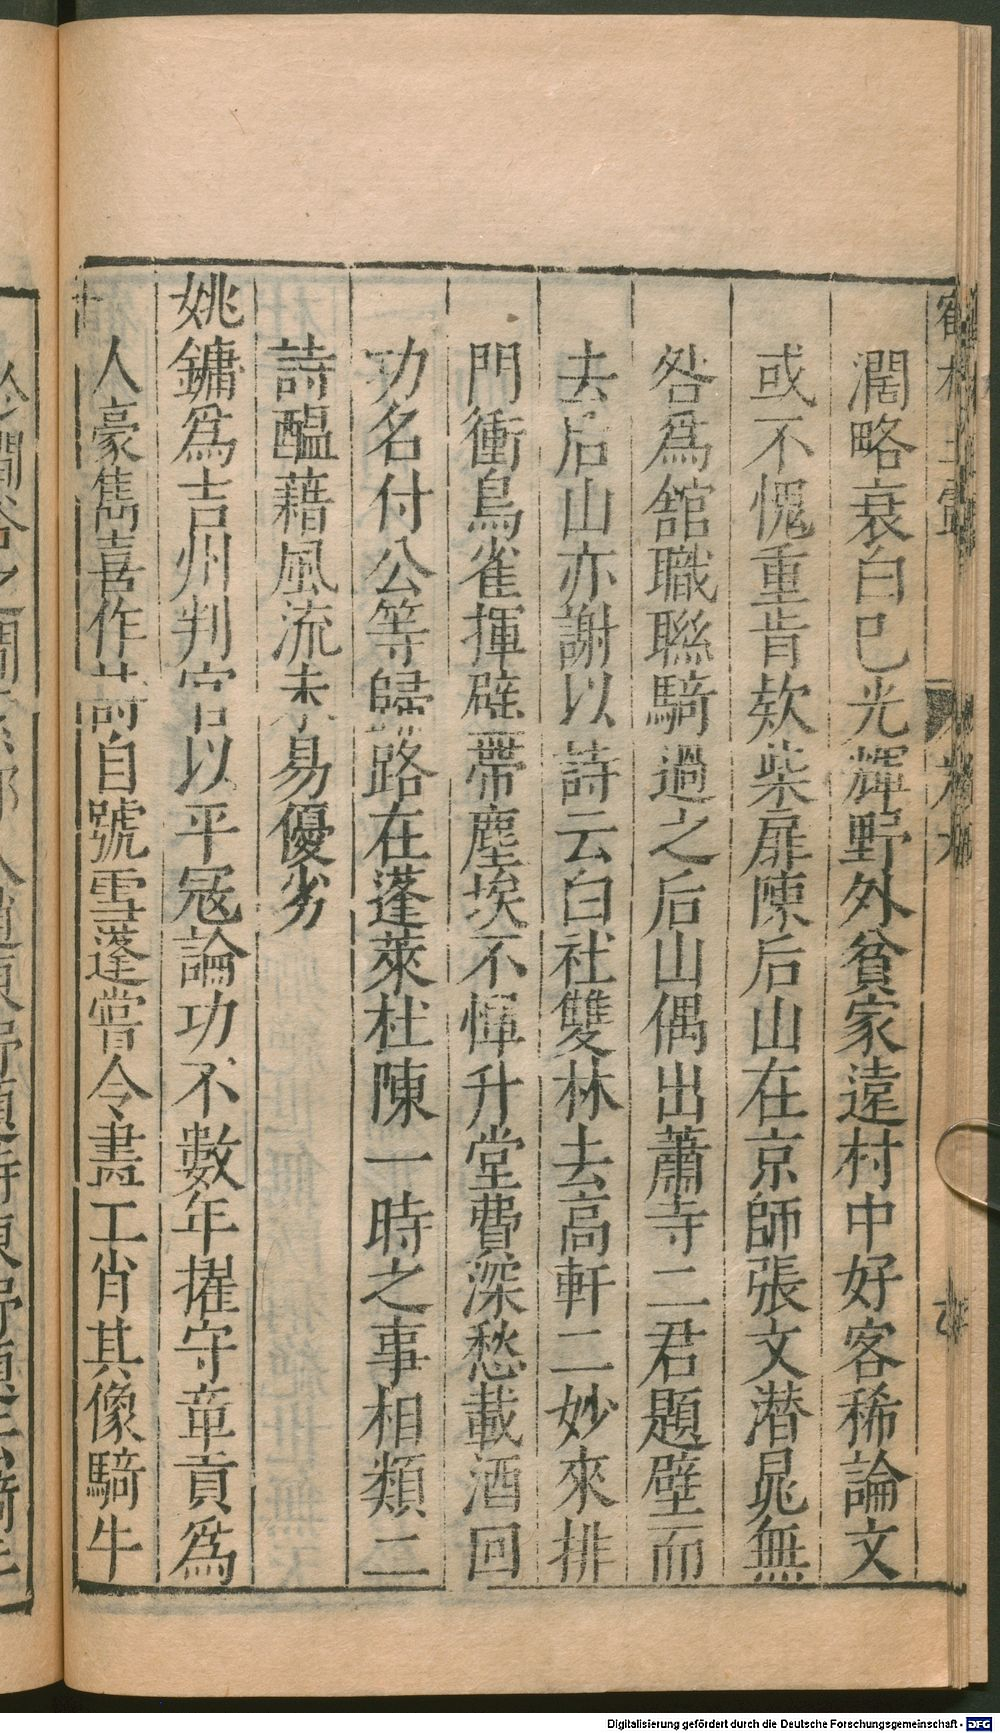 濶略衰白已光輝野外貧家遠村中好客稀論文
或不愧重肯欵柴扉陳后山在京師張文潜晁無
咎爲舘職聮騎過之后山偶出蕭寺二君題壁而
去后山亦謝以詩云白社雙林去高軒二妙來排
門衝鳥雀揮壁帶塵埃不憚升堂費深愁載酒回
功名付公等歸路在蓬萊杜陳一時之事相類二
詩醖藉風流未易優劣
姚鏞爲吉州判官以平冦論功不數年擢守章貢爲
人豪雋喜作詩自號雪蓬嘗令畵工肖其像騎牛
Digitalisierung gefördert durch die Deutsche Forschungsgemeinschaft - DFG